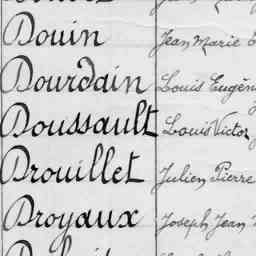 Douin Jean Marie
Dourdain Louis Eugèn
Doussault Louis Victor
Drouillet Julien Pierre
Droyaux Joseph Jean